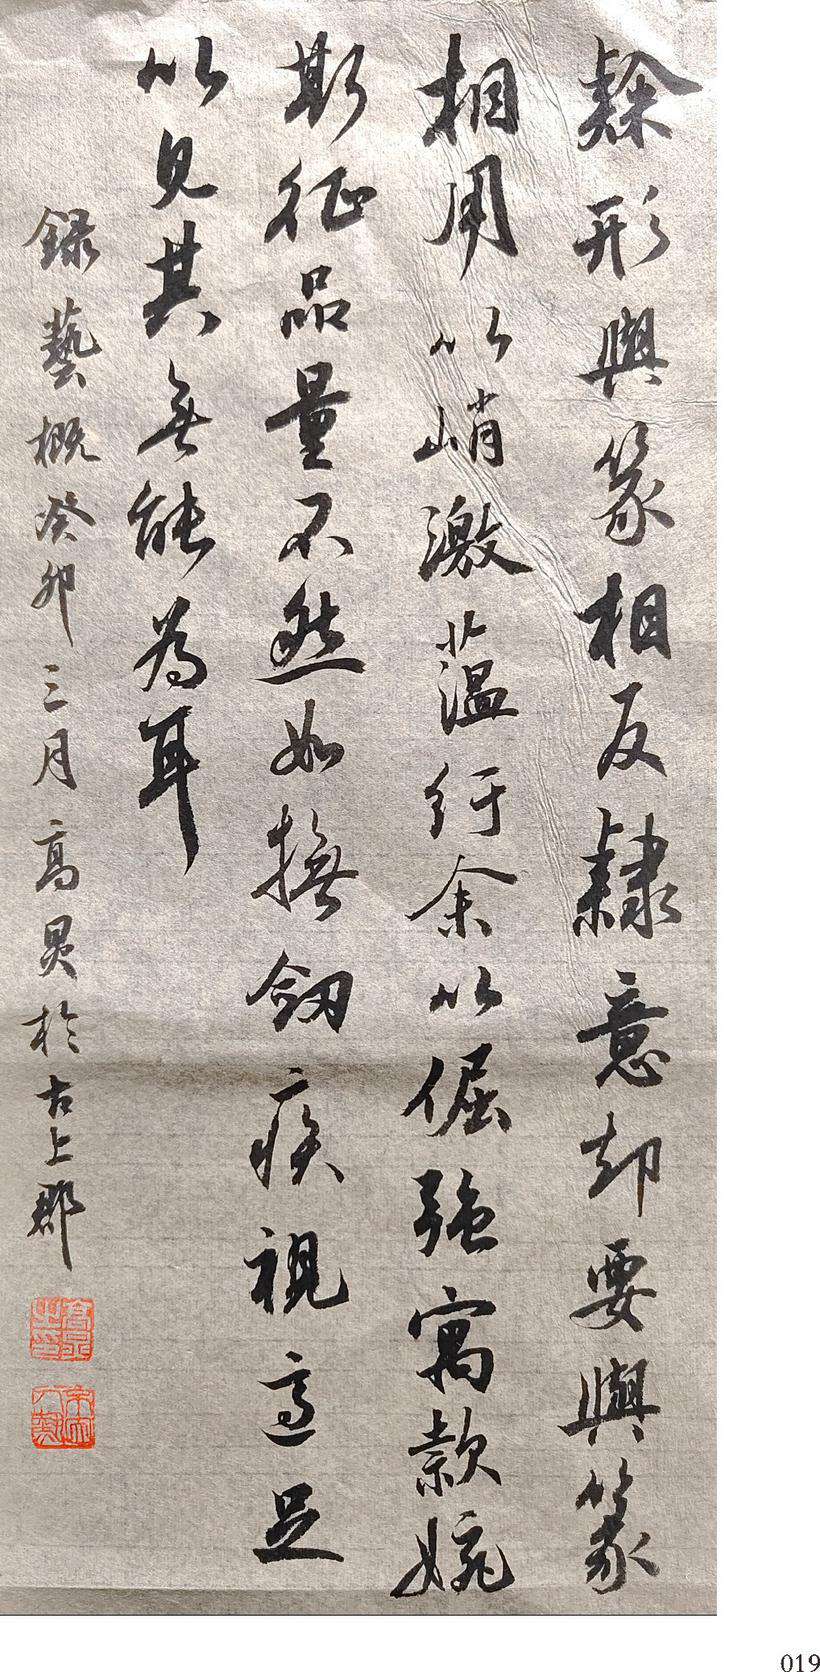 隸形與篆相反隸意却要與篆
相用以峭激蕴紆余以倔强寓款婉
斯征品量不然如撫劒疾視適足
以見其無能為耳
録藝概癸卯三月高炅於古上郡
019